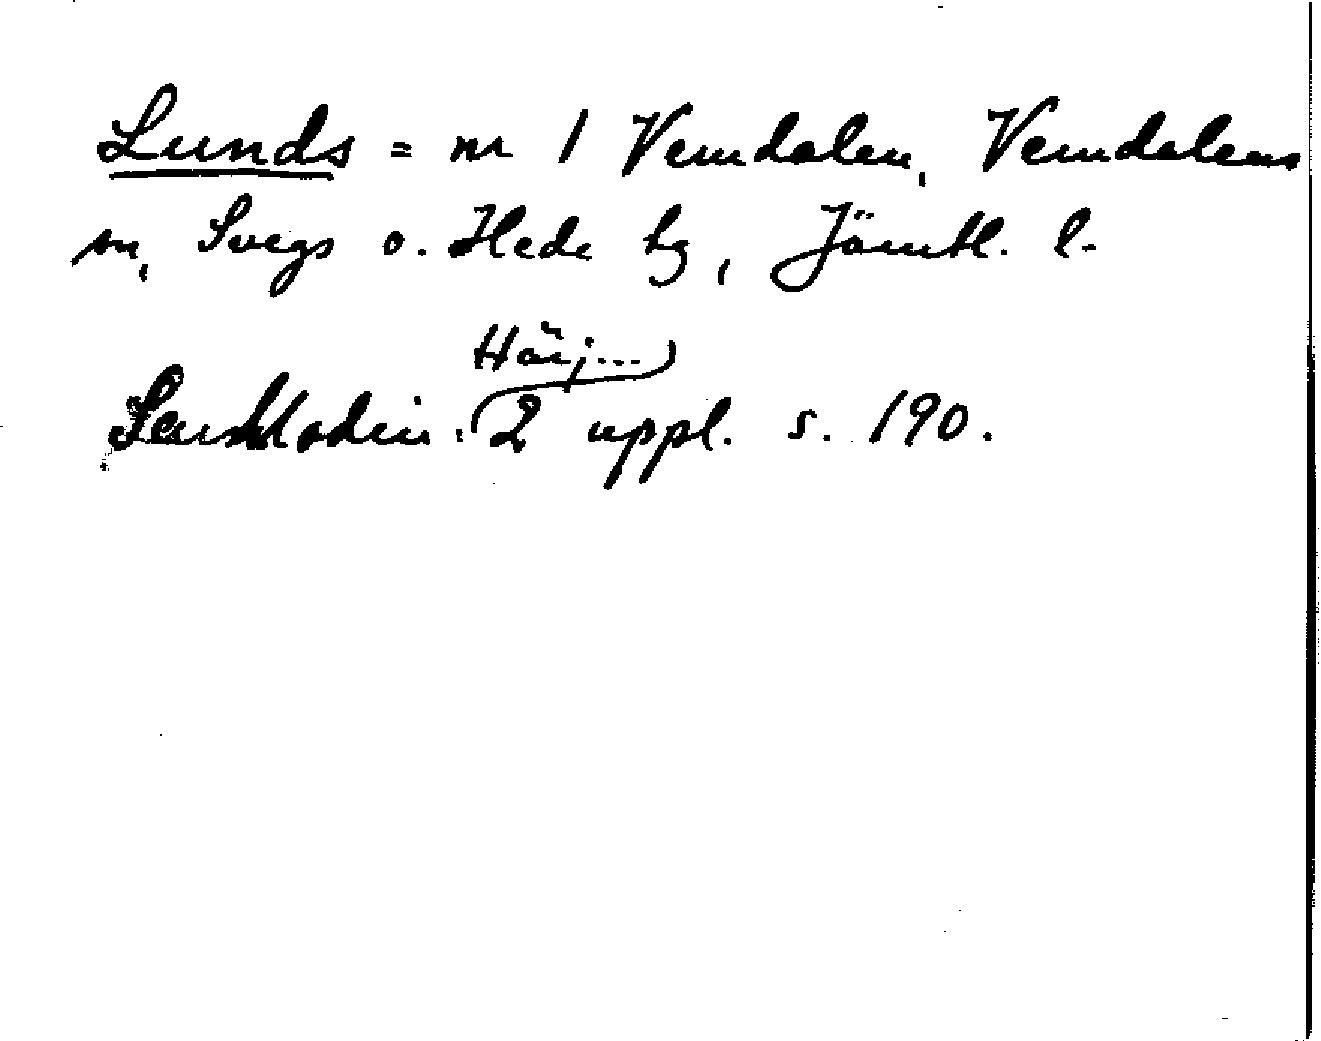 Lunds = nr 1 Vemdalen, Vemdalens
sn, Svegs o. Hede tg, Jämtl. l.
Härj...
Modin. 2 uppl. s. 190.